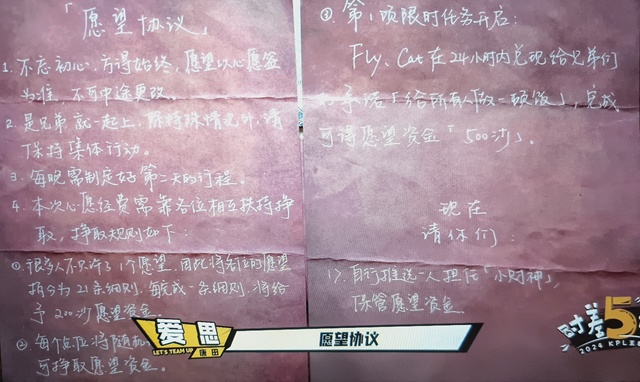 「愿望协议」
1. 不忘初心，方得始终，愿望以心愿签
为准，不可中途更改。
2. 是兄弟就一起上，除特殊情况外，请
保持集体行动。
3. 每晚需制定好第二天的行程。
4. 本次心愿经费需靠各位相互扶持挣
取，挣取规则如下：
① 很多人不只许了1个愿望，因此将各位的愿望
拆分为21条细则，每完成一条细则，将给
予200沙愿望资金。
② 每个
可挣取愿望资金。
③ 第1项限时任务开启：
Fly、Cat在24小时内兑现给兄弟们
承诺「给所有人做一顿饭」，完成
可得愿望资金「500沙」。
现在
请你们：
1>. 自行推选一人担任「小财神」，
保管愿望资金
爱思
LET'S TEAM UP
唐田
愿望协议
时差5
2024 KPL